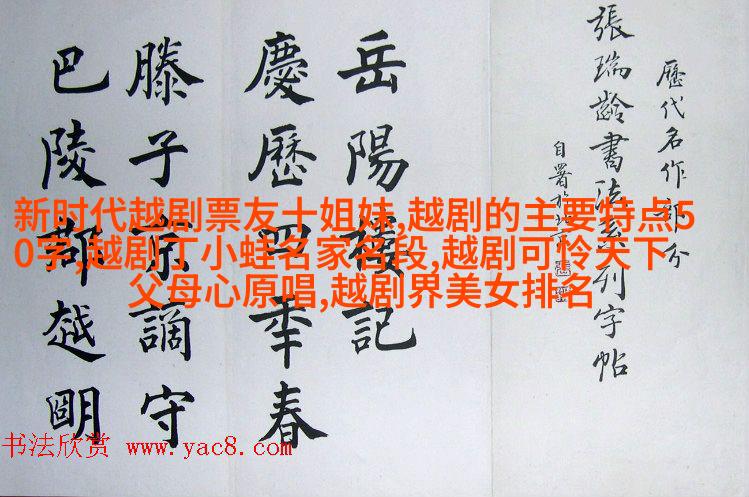 歷代名作部分
張瑞齡書法系列字帖
自署於北京
岳陽樓記
慶歷四年春
滕子京謫守
巴陵郡越朙
新时代越剧票友十姐妹,越剧的主要特点5
0字,越剧丁小蛙名家名段,越剧可怜天下
父母心原唱,越剧界美女排名
书法欣赏 www.yac8.com